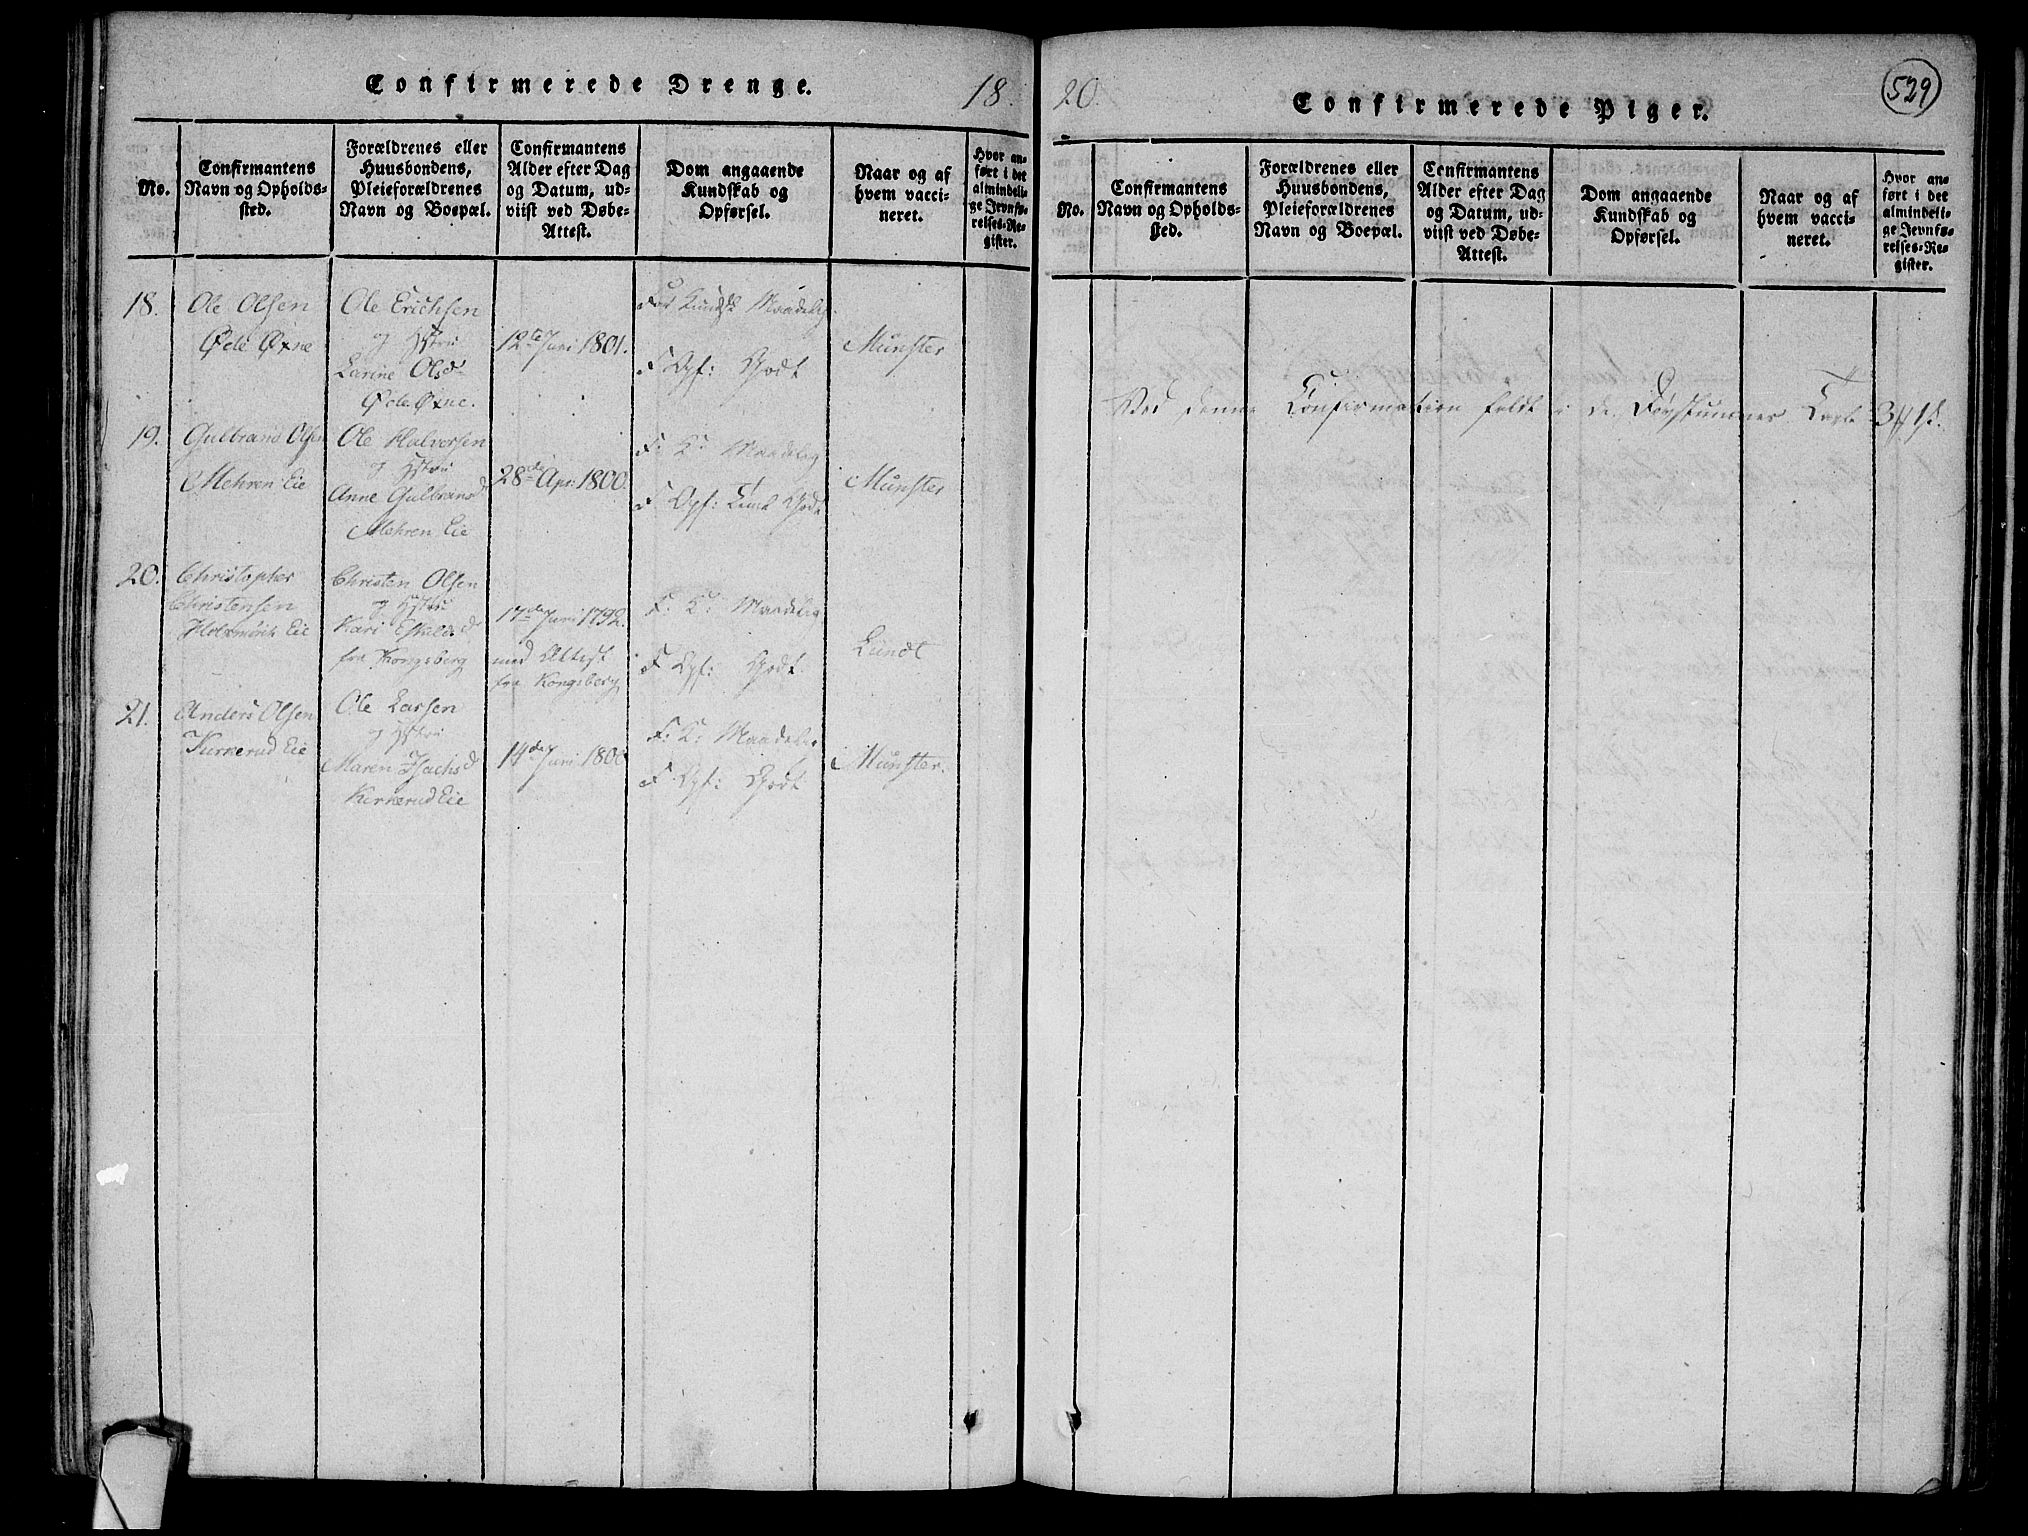 Confirmerede Drenge. 18
No.
Confirmantens
Navn og Opholds-
sted.
Forældrenes eller
Huusbondens,
Pleieforældrenes
Navn og Boepæl.
Confirmantens
Alder efter Dag
og Datum, ud-
viist ved Døbe-
Attest.
Dom angaaende
Kundskab og
Opførsel.
Naar og af
hvem vacci-
neret.
Hvor an-
ført i det
almindeli-
ge Jevnfø-
relses-Re-
gister.
18.
Ole Olsen
Øde Øxne
Ole Erichsen
og Hstru
Larine Olsd
Øde Øxne.
12te Juni 1801.
For Kundsk Maadelig.
F Opf: Godt
Münster
19.
Gulbrand Olsen
Mehren Eie
Ole Halvorsen
og Hstru
Anne Gulbransd
Mehren Eie
28de Apr: 1800.
F: K: Maadelig
F Opf: Godt
Münster
20.
Christopher
Christensen
Holtmörk Eie
Christen Olsen
og Hstru
Kari Eskilds d
fra Kongsberg
17de Juni 1792.
med Attest
fra Kongsberg
F: K: Maadelig
F Opf: Godt
Lundt
21.
Anders Olsen
Kirkerud Eie
Ole Larsen
og Hstru
Maren Isachs d
Kirkerud Eie
14de Juni 180
F: K: Maadelig
F Opf: Godt
Münster.
20. Confirmerede Piger. 529
No.
Confirmantens
Navn og Opholds-
sted.
Forældrenes eller
Huusbondens,
Pleieforældrenes
Navn og Boepæl.
Confirmantens
Alder efter Dag
og Datum, ud-
viist ved Døbe-
Attest.
Dom angaaende
Kundskab og
Opførsel.
Naar og af
hvem vacci-
neret.
Hvor an-
ført i det
almindeli-
ge Jevnfø-
relses-Re-
gister.
Ved denne Confirmation faldt i de Døvstummes Tavle